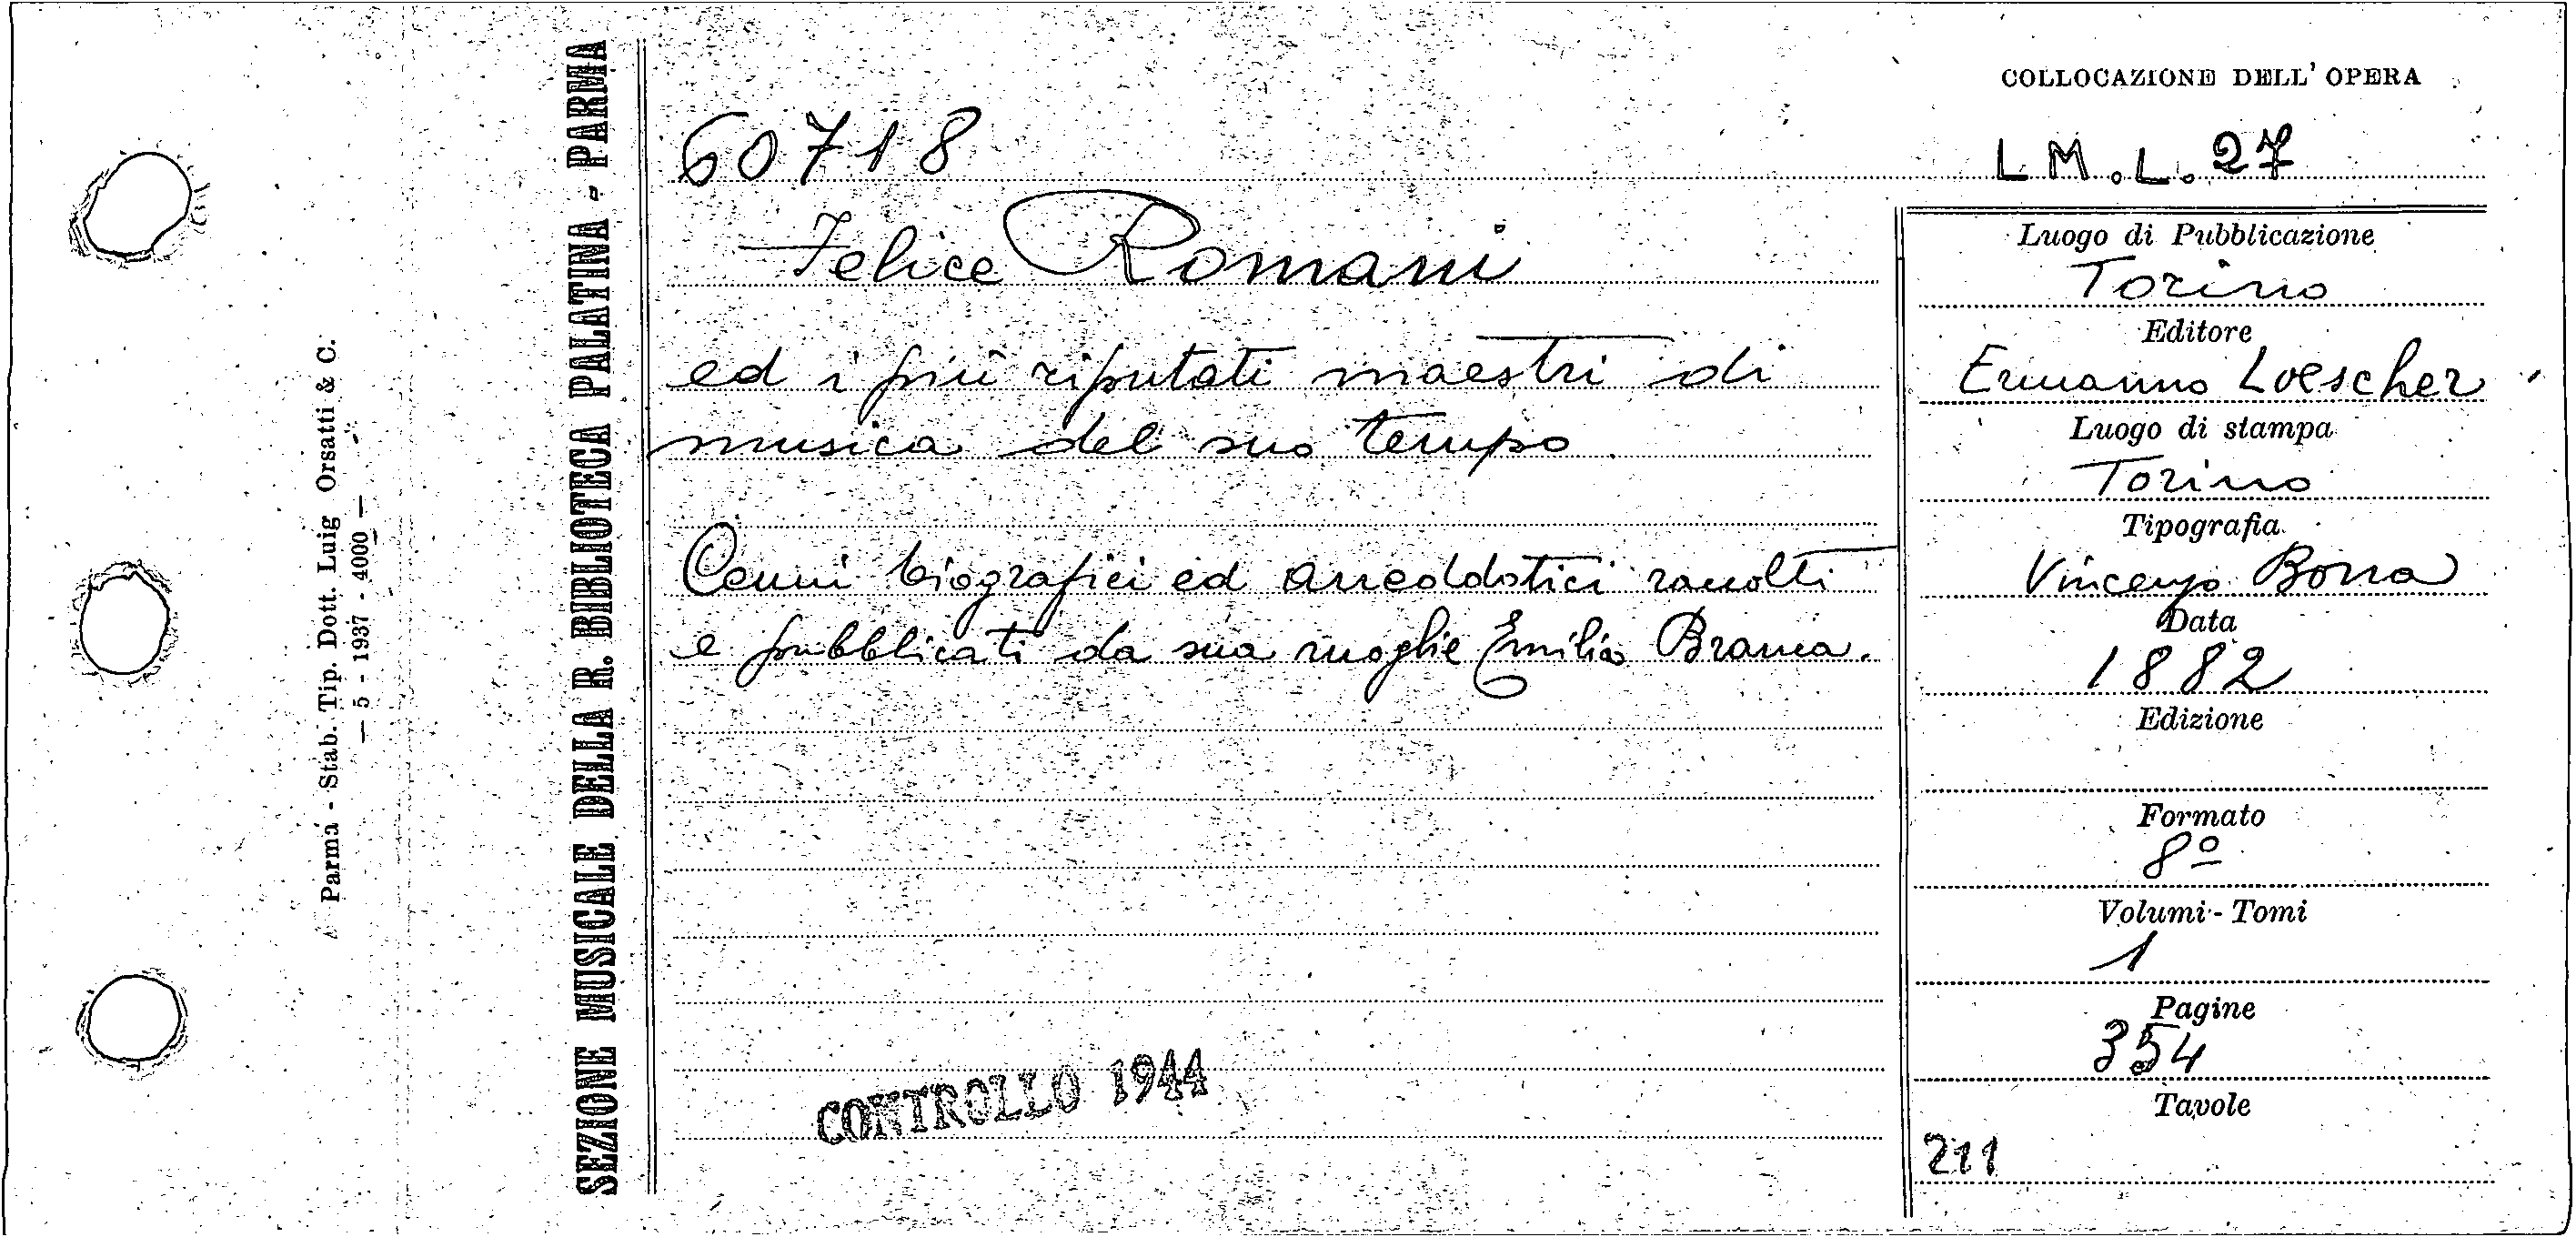 Parma - Stab. Tip. Dott. Luig Orsatti & C.
— 5 - 1937 - 4000 —
SEZIONE MUSICALE DELLA R. BIBLIOTECA PALATINA - PARMA
60718
Felice Romani
ed i più riputati maestri di
musica del suo tempo.
Cenni biografici ed aneddotici raccolti
e pubblicati da sua moglie Emilia Branca.
CONTROLLO 1944
COLLOCAZIONE DELL' OPERA
L M. L. 27
Luogo di Pubblicazione
Torino
Editore
Ermanno Loescher
Luogo di stampa
Torino
Tipografia
Vincenzo Bona
Data
1882
Edizione
Formato
8º
Volumi - Tomi
1
Pagine
354
Tavole
211